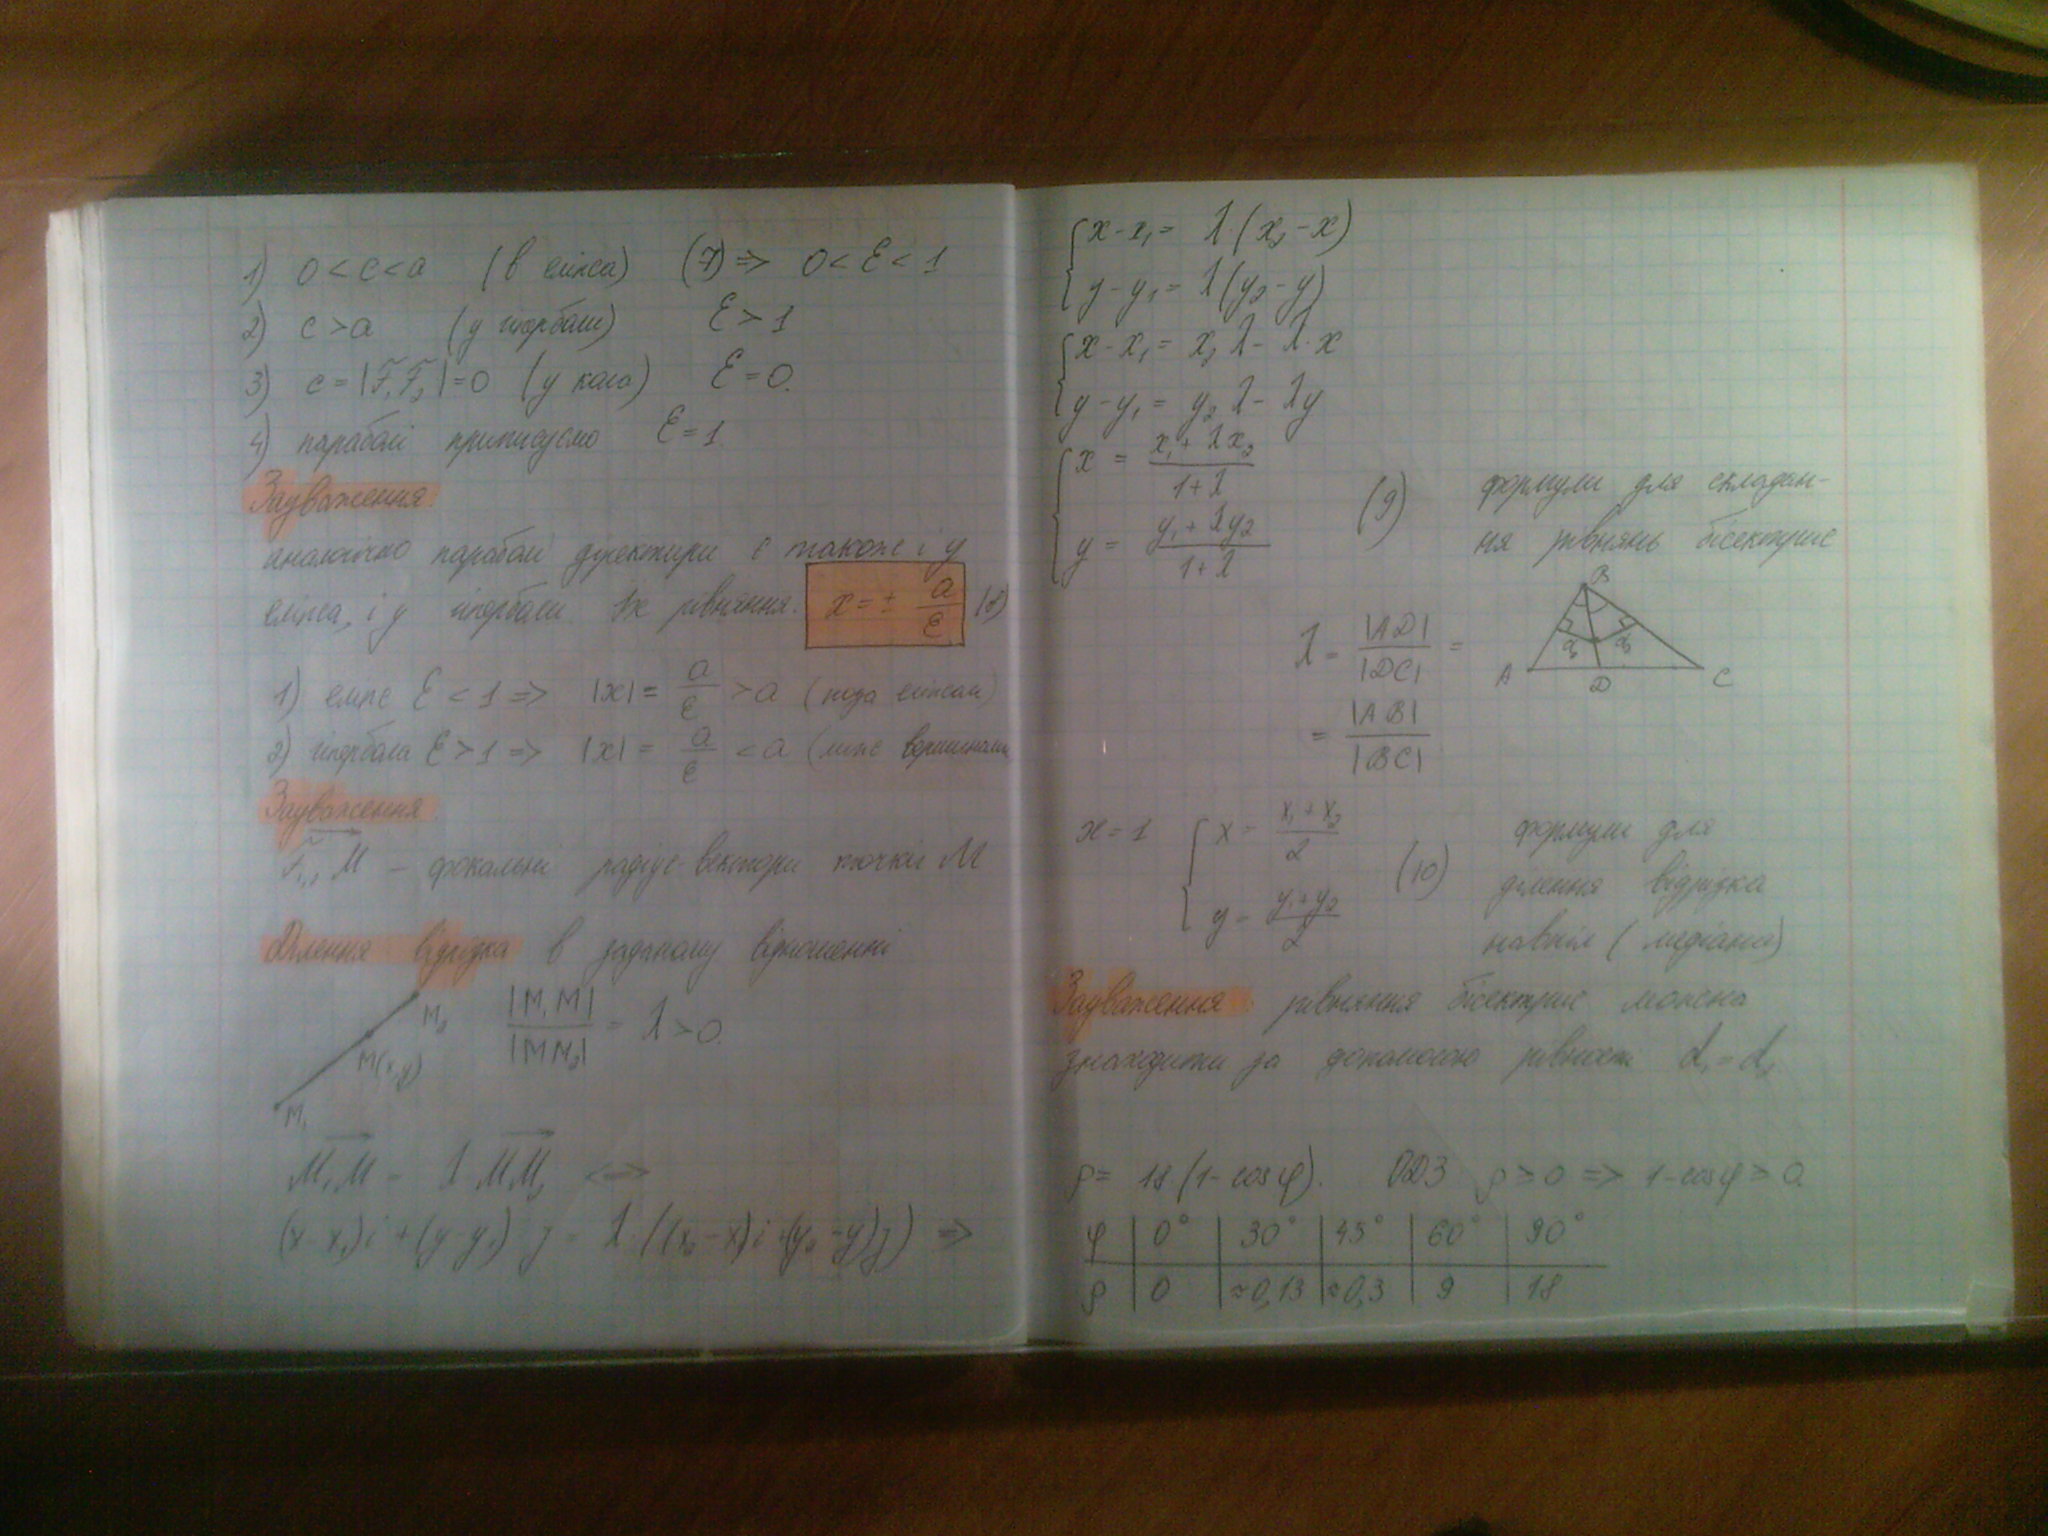 1) 0 < c < a (в еліпса) (7) => 0 < ε < 1
2) c > a (у гіперболи) ε > 1
3) c = |F₁F₂| = 0 (у кола) ε = 0.
4) параболі приписуємо ε = 1.
Зауваження.
аналогічно параболі директриси є також і у
еліпса, і у гіперболи. Їх рівняння: x = ± a/ε (8)
1) еліпс ε < 1 => |x| = a/ε > a (поза еліпсом)
2) гіпербола ε > 1 => |x| = a/ε < a (між вершинами
Зауваження.
F₁,₂M – фокальні радіус-вектори точки M
Ділення відрізка в заданому відношенні
M₂
M(x,y)
M₁
|M₁M| / |MM₂| = λ > 0.
M₁M = λ MM₂ <=>
(x-x₁)i + (y-y₁) j = λ ((x₂-x)i+(y₂-y)j) =>
{ x-x₁ = λ·(x₂-x)
y-y₁ = λ(y₂-y)
{ x-x₁ = x₂λ - λ·x
y-y₁ = y₂λ - λy
{ x = (x₁+λx₂)/(1+λ)
y = (y₁+λy₂)/(1+λ) (9) формули для складан-
ня рівнянь бісектрис
B
A D C
λ = |AD|/|DC| =
= |AB|/|BC|
x = 1 { x = (x₁+x₂)/2
y = (y₁+y₂)/2 (10) формули для
ділення відрізка
навпіл (медіани)
Зауваження: рівняння бісектрис можна
знаходити за допомогою рівності d₁ = d₂
ρ = 18 (1-cosφ). ОДЗ ρ ≥ 0 => 1-cosφ ≥ 0.
φ | 0° | 30° | 45° | 60° | 90°
ρ | 0 | ≈0,13 | ≈0,3 | 9 | 18